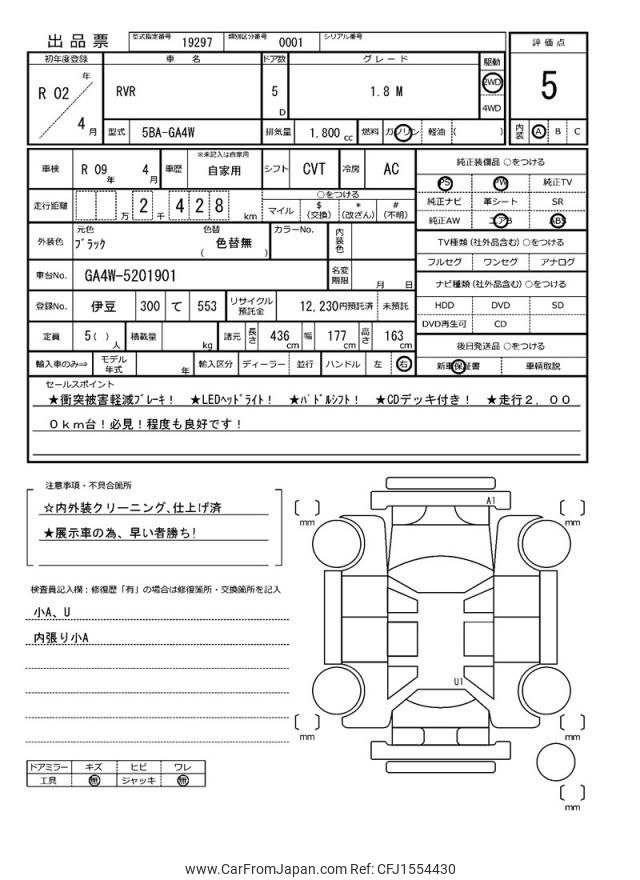 出品票 型式指定番号 19297 類別区分番号 0001 シリアル番号
評価点
初年度登録 車名 ドア数 グレード 駆動
R 02 年 4 月 RVR 5 D 1.8 M 2WD 4WD
5
型式 5BA-GA4W 排気量 1.800 cc 燃料 ガソリン 軽油 ( )
内装 A B C
車検 R 09 年 4 月 車歴 ※未記入は自家用 自家用 シフト CVT 冷房 AC
純正装備品 ○をつける
PS PW 純正TV
走行距離 万 2 千 4 2 8 km ○をつける
マイル $ (交換) * (改ざん) # (不明)
純正ナビ 革シート SR
純正AW エアB ABS
外装色 元色 ブラック 色替 ( 色替無 ) カラーNo. 内装色
TV種類 (社外品含む) ○をつける
フルセグ ワンセグ アナログ
車台No. GA4W-5201901 名変期限 月 日
ナビ種類 (社外品含む) ○をつける
登録No. 伊豆 300 て 553 リサイクル預託金 12,230円預託済 未預託
HDD DVD SD
DVD再生可 CD
定員 5( ) 人 積載量 kg 諸元 長さ 436 cm 幅 177 cm 高さ 163 cm
後日発送品 ○をつける
輸入車のみ⇒ モデル年式 年 輸入区分 ディーラー 並行 ハンドル 左 右
新車保証書 車輌取説
セールスポイント
★衝突被害軽減ブレーキ! ★LEDヘッドライト! ★パドルシフト! ★CDデッキ付き! ★走行2,00
0km台!必見!程度も良好です!
注意事項・不具合箇所
☆内外装クリーニング、仕上げ済
★展示車の為、早い者勝ち!
検査員記入欄:修復歴「有」の場合は修復箇所・交換箇所を記入
小A、U
内張り小A
A1
mm
mm
U1
mm
mm
mm
ドアミラー キズ ヒビ ワレ
工具 無 ジャッキ 無
www.CarFromJapan.com Ref: CFJ1554430